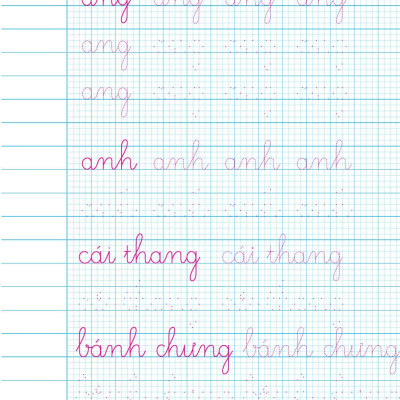 ang ang ang ang
ang
ang
anh anh anh anh
cái thang cái thang
bánh chưng bánh chưng